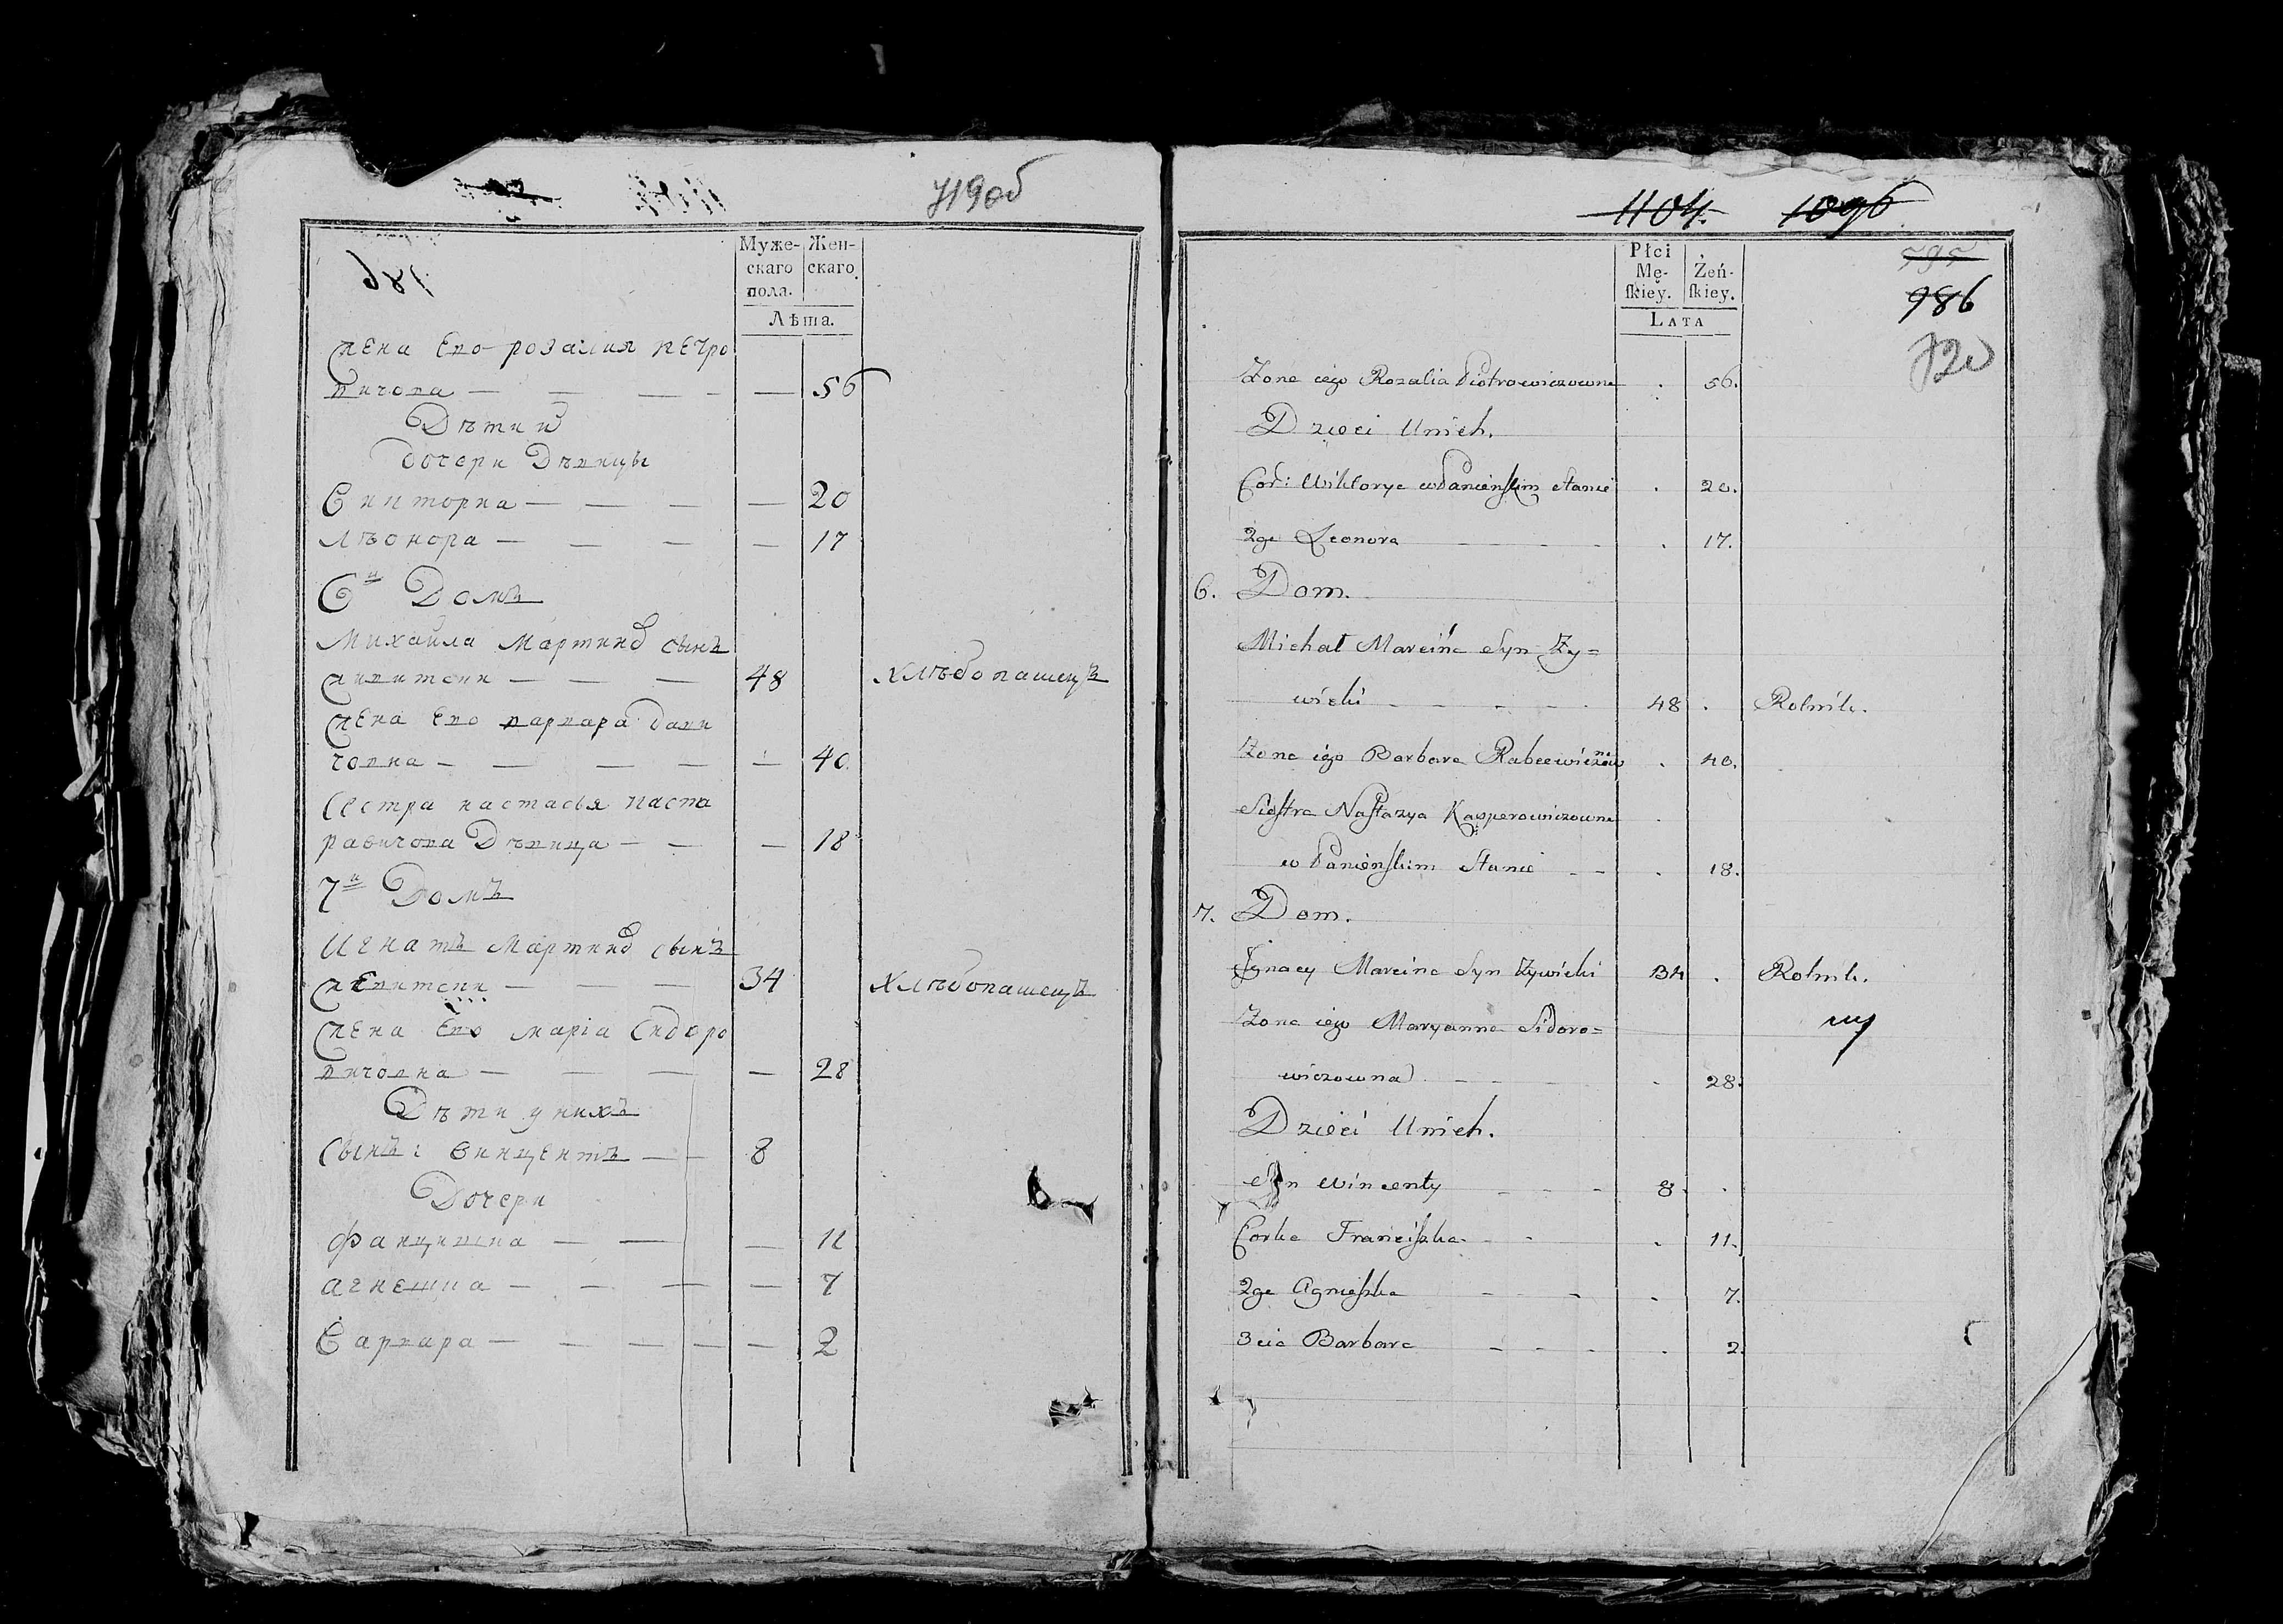 719об
986
Муже-
скаго
пола.
Жен-
скаго
Лѣта.
жена Его розалия петро
вичова — — — — — 56
Дѣти и
дочери Дѣвицы
Викторка — — — — 20
Лѣонора — — — — 17
6й Домъ
Михайла Мартинов сынъ
живитски — — — 48 хлѣбопашецъ
жена Его варвара
— — — — — 40
Сестра настасья каспа
равичова Дѣвица — — — 18
7й Домъ
Игнатъ Мартинов сынъ
живитски — — — 34 Хлѣбопашецъ
жена Его маріа Сидоро
вичовна — — — — 28
Дѣти у нихъ
Сынъ: Винцентъ — — 8
Дочери
Францишка — — — 11
Агнешка — — — — 7
Варвара — — — — — 2
1104. 1096
595
986
720
Płci
Mę-
ſkiey.
Żeń-
ſkiey.
LATA
Zona iego Rozalia Piotrowiczowna . 56.
Dzieci Unich.
Cor: Wiktorya w Panieńskim stanie . 20.
2ga Leonora - - - . 17.
6. Dom.
Michał Marcina Syn Zy=
wicki - - - - - 48 . Rolnik.
Zona iego Barbara . 40.
Siostra Nastazya Kasperowiczowna .
w Panieńskim Stanie - - . 18.
7. Dom.
Ignacy Marcina Syn Zywicki 34 . Rolnik.
Zona iego Maryanna Sidoro=
wiczowna - - - - . 28.
Dzieci Unich.
Syn Wincenty - - - 8. .
Corka Franciszka - - . 11.
2ga Agnieszka - - - . 7.
3cia Barbara - - - . 2.